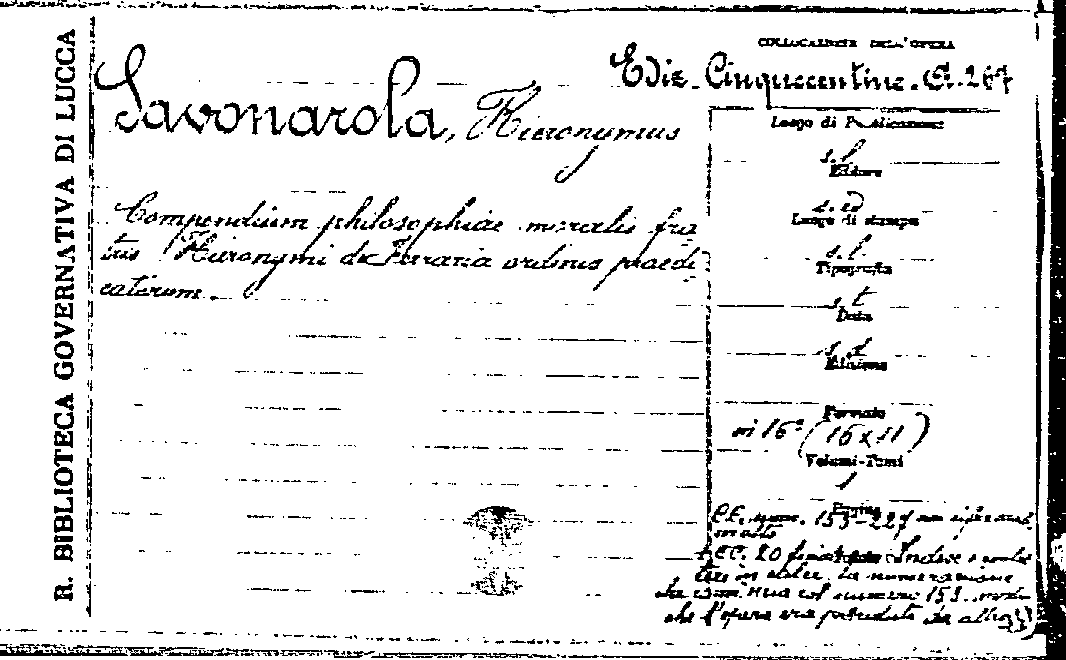 R. BIBLIOTECA GOVERNATIVA DI LUCCA
COLLOCAZIONE DELL'OPERA
Ediz. Cinquecentine. G. 267
Savonarola, Hieronymus
Compendium philosophiae moralis fra
tris Hieronymi de Ferraria ordinis praedi-
catorum.
Luogo di Pubblicazione
s. l.
Editore
s. e.
Luogo di stampa
s. l.
Tipografia
s. t.
Data
s. d.
Edizione
Formato
in 16° (16 x 11)
Volumi-Tomi
1
Pagine
CC. num. 153-227
molto
CC. 20 Indice
in calce. la numerazione
che com col numero 153
che l'opera era preceduta da altro